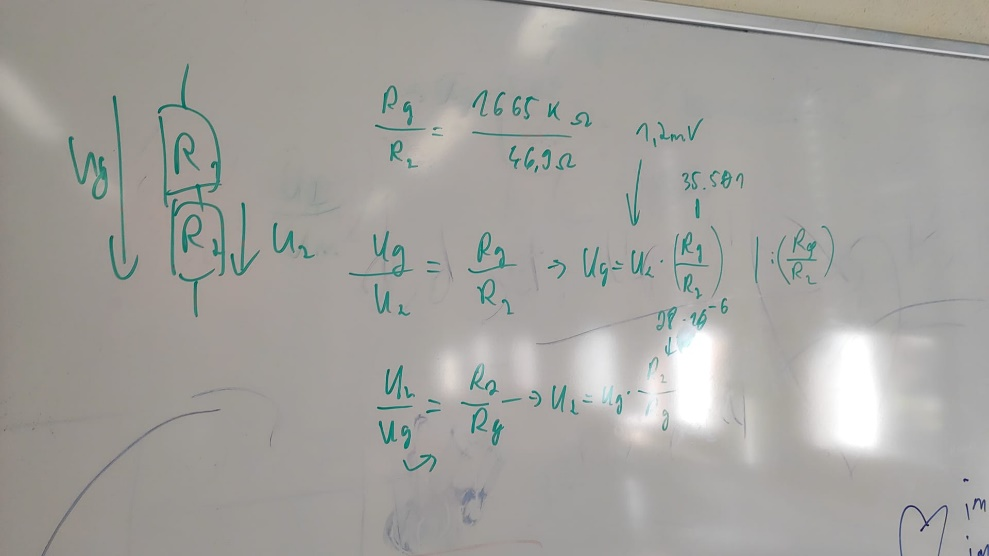 Ug
R1
R2
U2
Rg/R2 = 1665 KΩ / 46,9Ω
1,2mV
35.501
Ug/U2 = Rg/R2 => Ug = U2 · (Rg/R2) | : (Rg/R2)
28·10⁻⁶
U2/Ug = R2/Rg -> U2 = Ug · R2/Rg
im